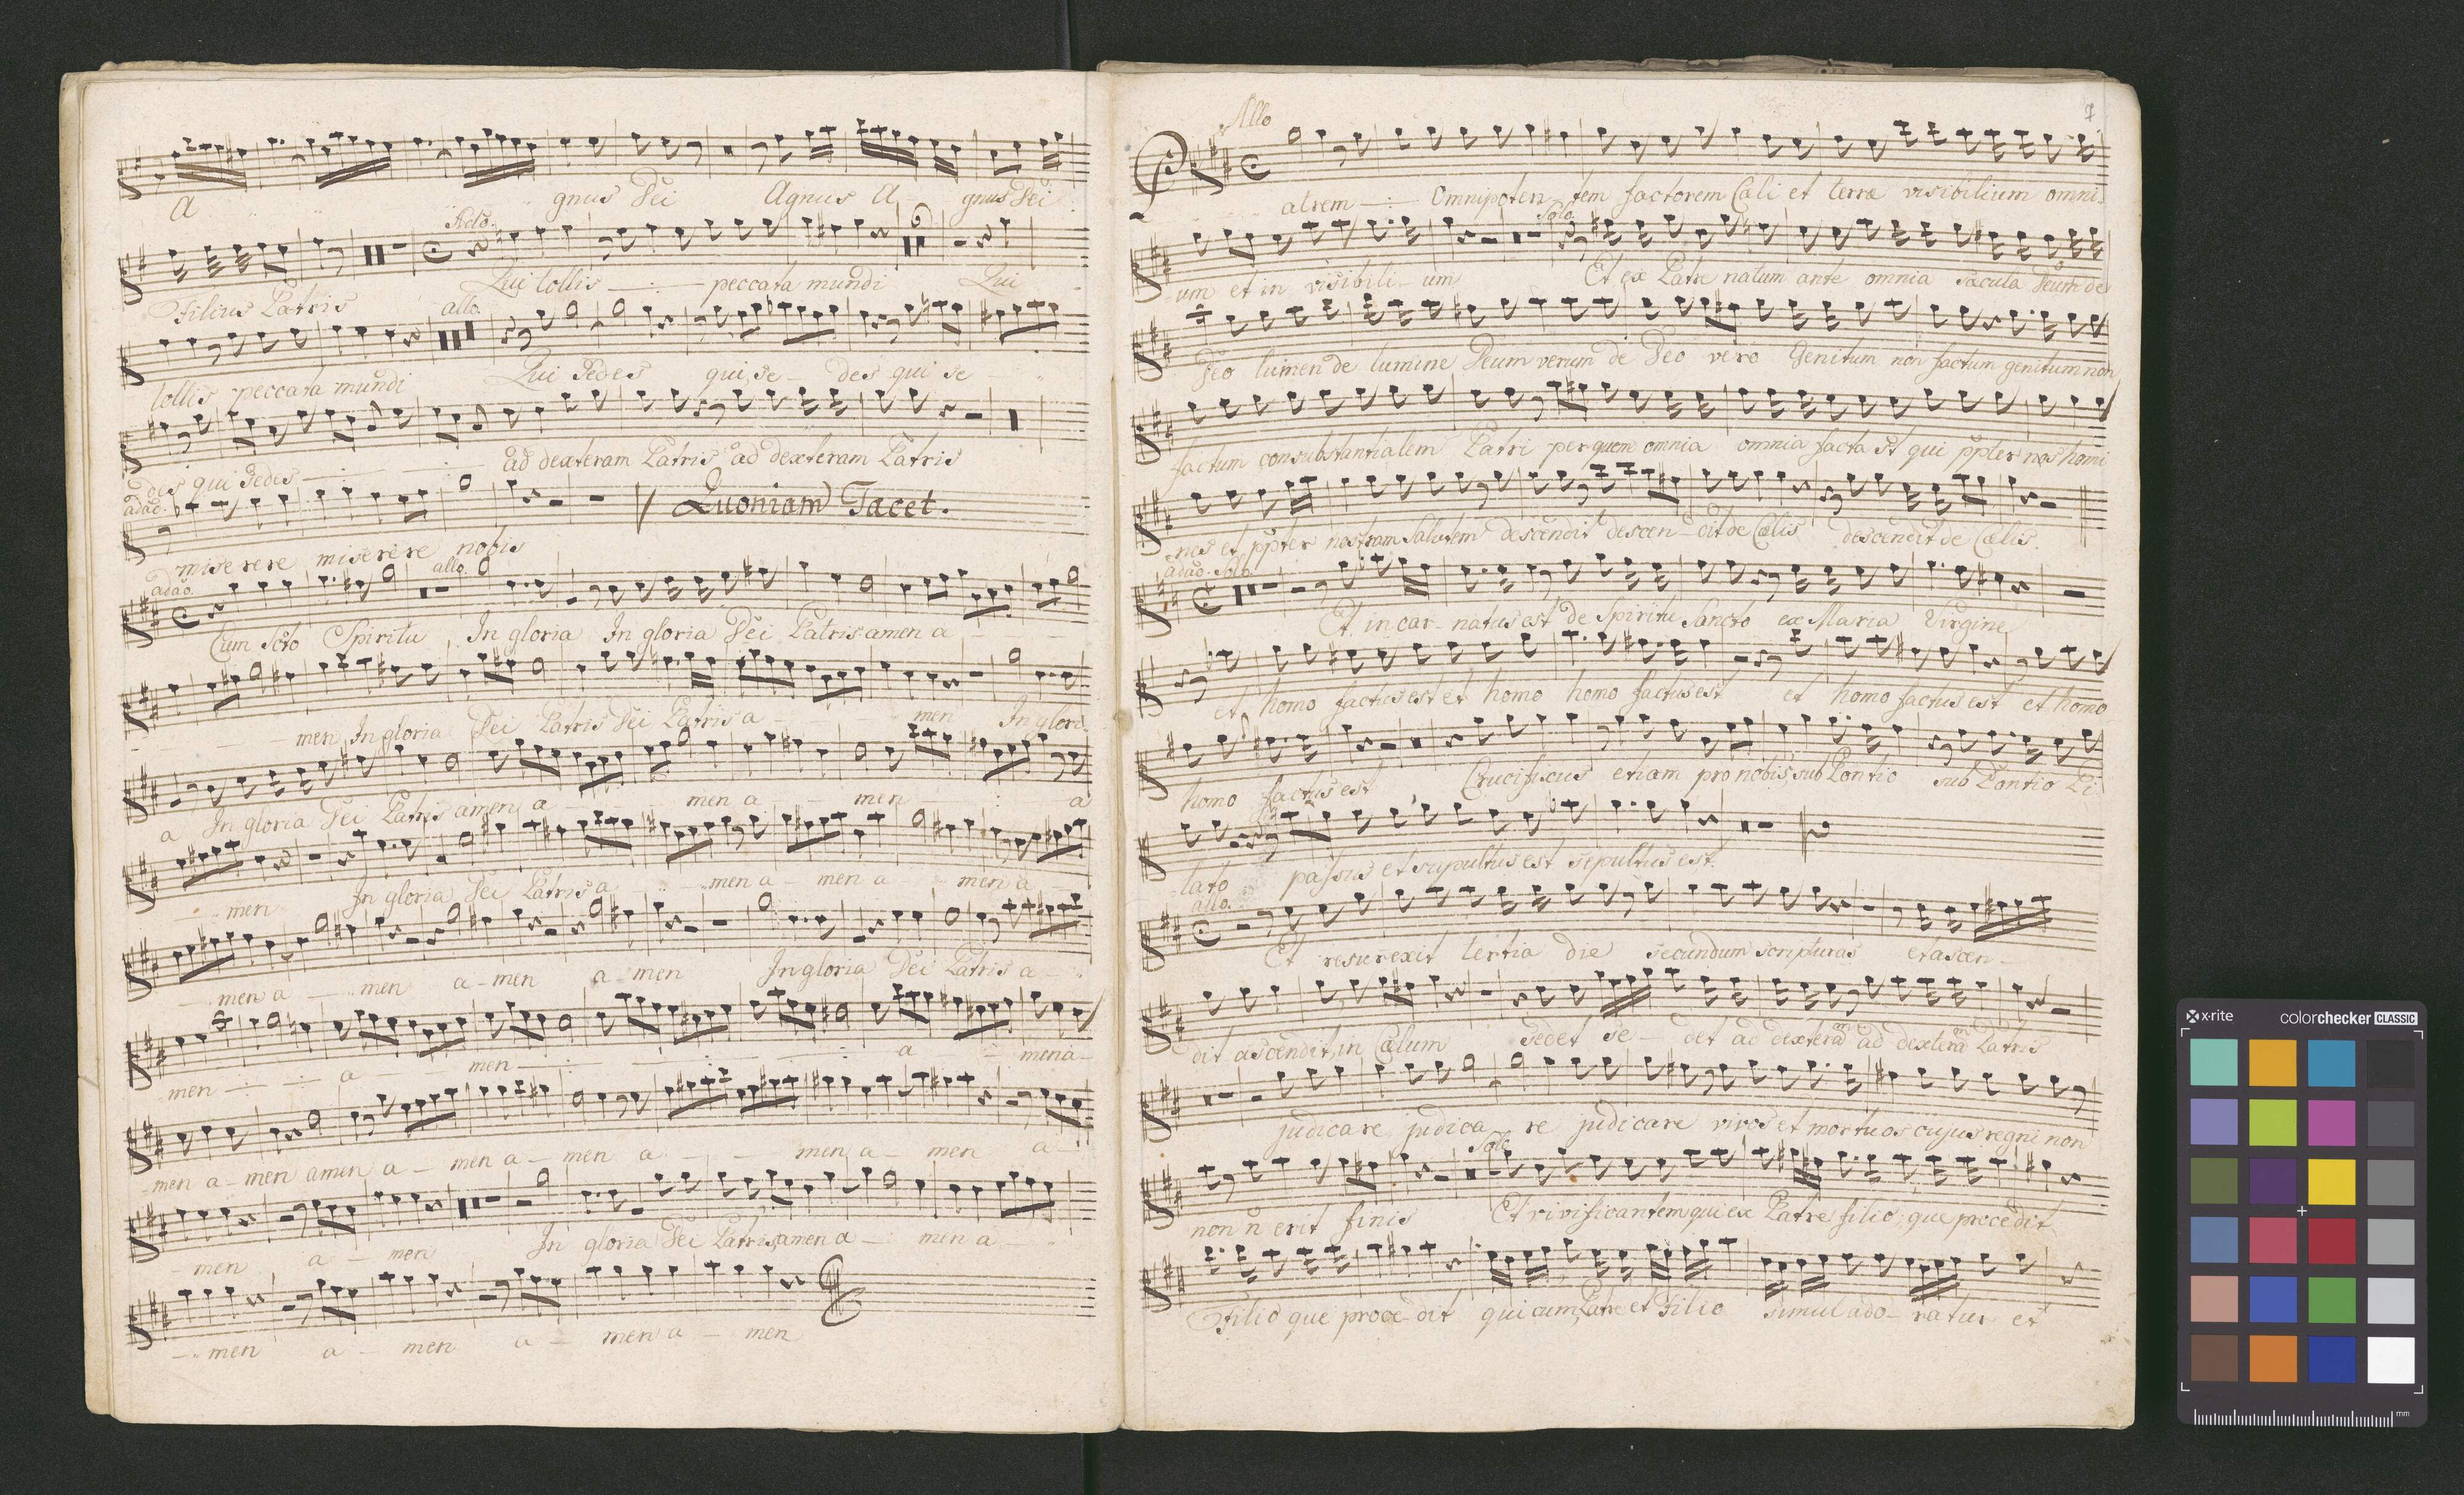 A gnus Dei Agnus A gnus Dei
Ado.
Filius Patris Qui tollis peccata mundi Qui
allo.
tollis peccata mundi Qui Sedes qui se - des qui se
des qui Sedes ad dexteram Patris ad dexteram Patris
adao. Quoniam Tacet.
miserere miserere nobis
adao. allo.
Cum Scto Spiritu In gloria In gloria Dei Patris amen a
men In gloria Dei Patris Dei Patris a men In glori
a In gloria Dei Patris amen a men a men a
men In gloria Dei Patris a men a - men a men a
men a men a - men a - men In gloria Dei Patris a -
men a men a men a -
men a - men amen a - men a - men a men a - men a -
men a - men In gloria Dei Patris amen a - men a
men a - men a - men a - men
7
Allo
atrem Omnipoten - tem factorem Cæli et terræ visibilium omni
Solo
um et in visibili - um Et ex Patre natum ante omnia sæcula Deum de
Deo lumen de lumine Deum verum de Deo vero Genitum non factum genitum non
factum consubstantialem Patri per quem omnia omnia facta st qui ppter nos homi
nes et ppter nostram Salutem descendit descen - dit de Cælis descendit de Cælis.
adao. Solo
Et incar - natus est de Spiritu Sancto ex Maria Virgine
et homo factus est et homo homo factus est et homo factus est et homo
homo factus est Crucifixus etiam pro nobis sub Pontio sub Pontio Pi
lato passus et supultus est sepultus est.
allo.
Et resurexit tertia die secundum scripturas et ascen -
dit ascendit in Cælum sedet se - det ad dexterã ad dexterã Patris
judicare judica re judicare vivos et mortuos cujus regni non
Solo
non n erit finis Et vivificantem qui ex Patre filio que procedit
Filio que proce - dit qui cum Patre et Filio simul ado - ratur et
x-rite colorchecker CLASSIC
mm